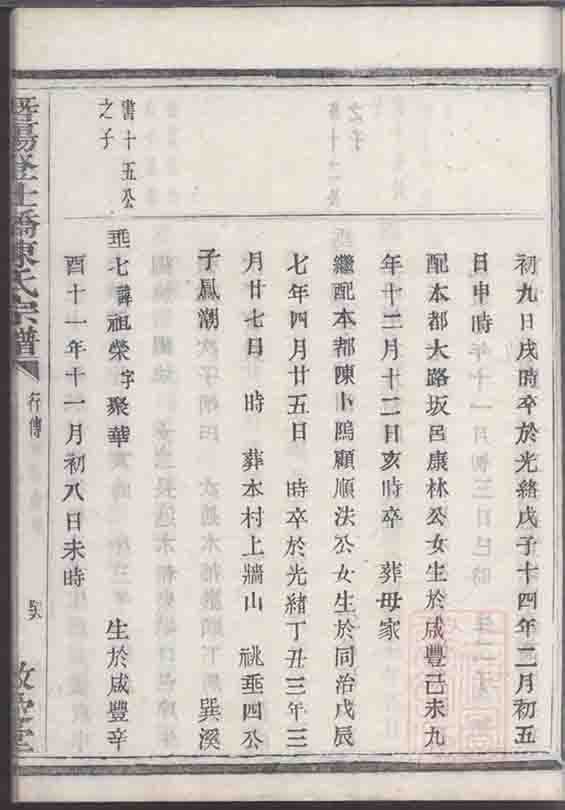 初九日戌時卒於光緒戊子十四年二月初五
日申時
配本都大路坂呂康林公女生於咸豐己未九
年十二月十二日亥時卒 葬母家
繼配本都陳卜塢顧順法公女生於同治戊辰
七年四月廿五日 時卒於光緒丁丑三年三
月廿七日 時 葬本村上牆山 祧垂四公
子鳳潮 巽溪
書十五公
之子
垂七諱祖榮字聚華 生於咸豐辛
酉十一年十一月初八日未時
暨陽登仕橋陳氏宗譜
行傳